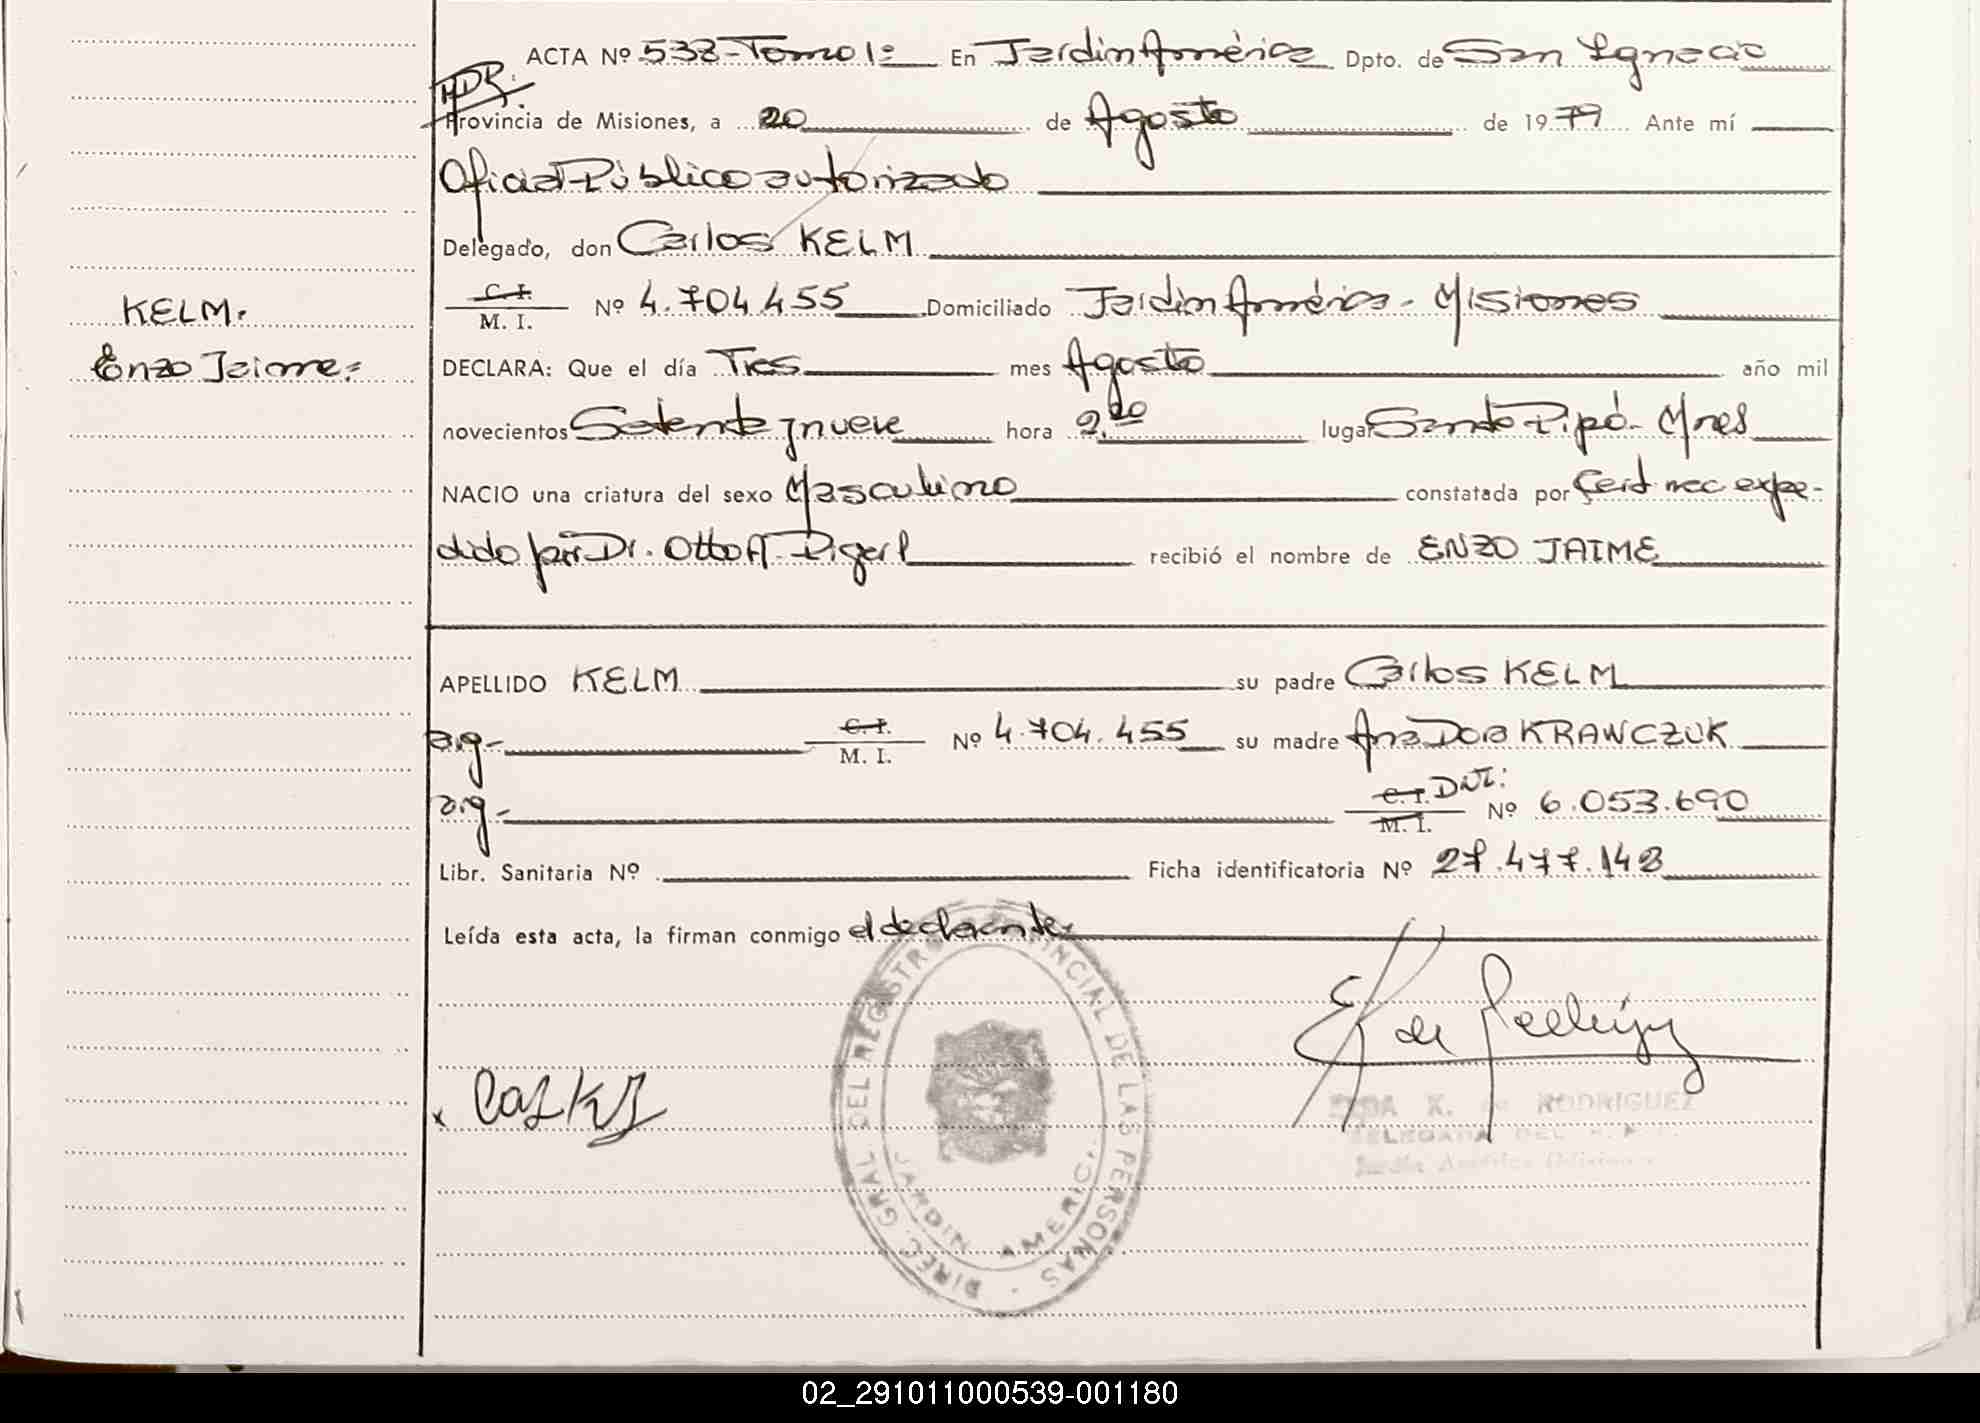 ACTA Nº 538-Tomo 1º En Jardin América Dpto. de San Ignacio
Provincia de Misiones, a 20 de Agosto de 1979 Ante mí
Oficial Público autorizado
Delegado, don Carlos KELM
C. I.
M. I. Nº 4.704.455 Domiciliado Jardin América - Misiones
KELM.
Enzo Jaime=
DECLARA: Que el día Tres mes Agosto año mil
novecientos Setenta y nueve hora 2.20 lugar Santo Pipó - Mnes
NACIO una criatura del sexo Masculino constatada por Cert nac expe-
dido por Dr. Otto A. recibió el nombre de ENZO JAIME
APELLIDO KELM su padre Carlos KELM
arg- C. I.
M. I. Nº 4.704.455 su madre Ana Dora KRAWCZUK
arg- C. I. DNI:
M. I. Nº 6.053.690
Libr. Sanitaria Nº Ficha identificatoria Nº 27.477.148
Leída esta acta, la firman conmigo el declarante
DIREC. GRAL. DEL REGISTRO PROVINCIAL DE LAS PERSONAS
JARDIN AMERIC.
K. de RODRIGUEZ
DELEGADA DEL
Jardín América Misiones
02_291011000539-001180